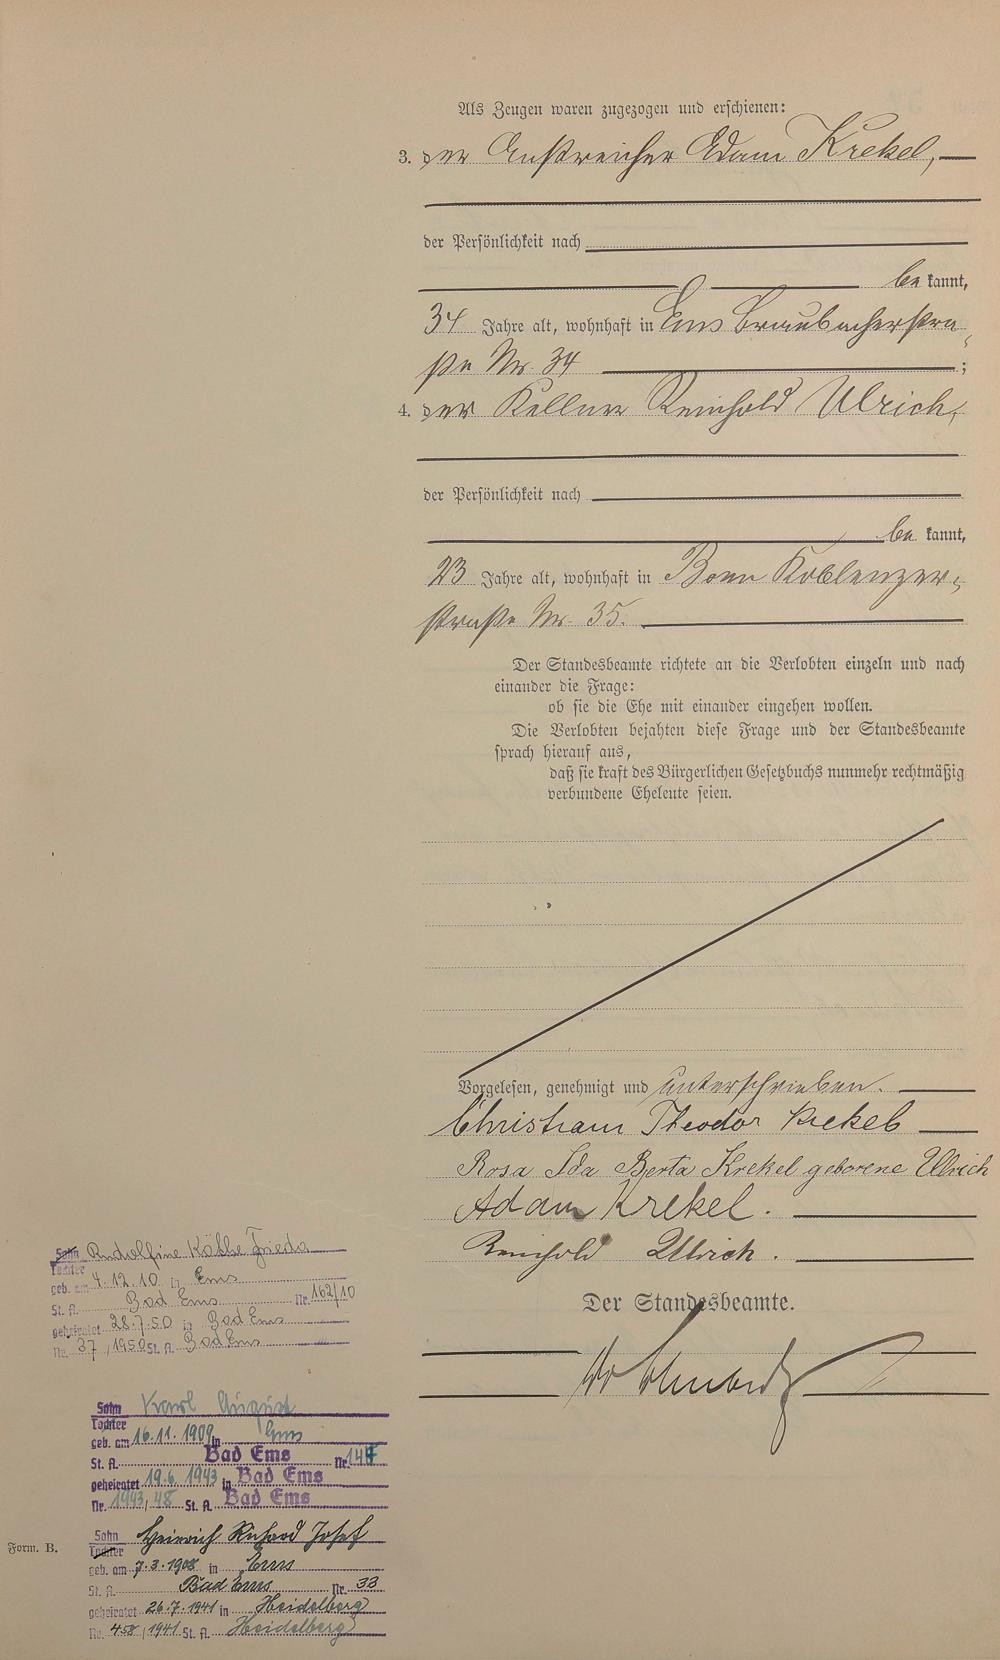 Als Zeugen waren zugezogen und erschienen:
3. der Anstreicher Adam Krekel,
der Persönlichkeit nach
be kannt,
34 Jahre alt, wohnhaft in Ems Braubacherstra-
ße Nr. 34 ;
4. der Kellner Reinhold Ulrich,
der Persönlichkeit nach
be kannt,
23 Jahre alt, wohnhaft in Bonn Koblenzer-
straße Nr. 35.
Der Standesbeamte richtete an die Verlobten einzeln und nach
einander die Frage:
ob sie die Ehe mit einander eingehen wollen.
Die Verlobten bejahten diese Frage und der Standesbeamte
sprach hierauf aus,
daß sie kraft des Bürgerlichen Gesetzbuchs nunmehr rechtmäßig
verbundene Eheleute seien.
Vorgelesen, genehmigt und unterschrieben.
Christian Theodor Krekel
Rosa Ida Berta Krekel geborene Ulrich
Adam Krekel.
Reinhold Ulrich.
Der Standesbeamte.
Sohn Rudolfine Käthe Frieda
Tochter
geb. am 4.12.10 in Ems
St. A. Bad Ems Nr. 162/10
geheiratet 28.7.50 in Bad Ems
Nr. 37/1950 St. A. Bad Ems
Sohn Karl August
Tochter
geb. am 16.11.1909 in Ems
St. A. Bad Ems Nr.
geheiratet 19.6.1943 in Bad Ems
Nr. 1943/48 St. A. Bad Ems
Sohn Heinrich Richard Josef
Tochter
geb. am 7.3.1908 in Ems
St. A. Bad Ems Nr. 33
geheiratet 26.7.1941 in Heidelberg
Nr. 458/1941 St. A. Heidelberg
Form. B.